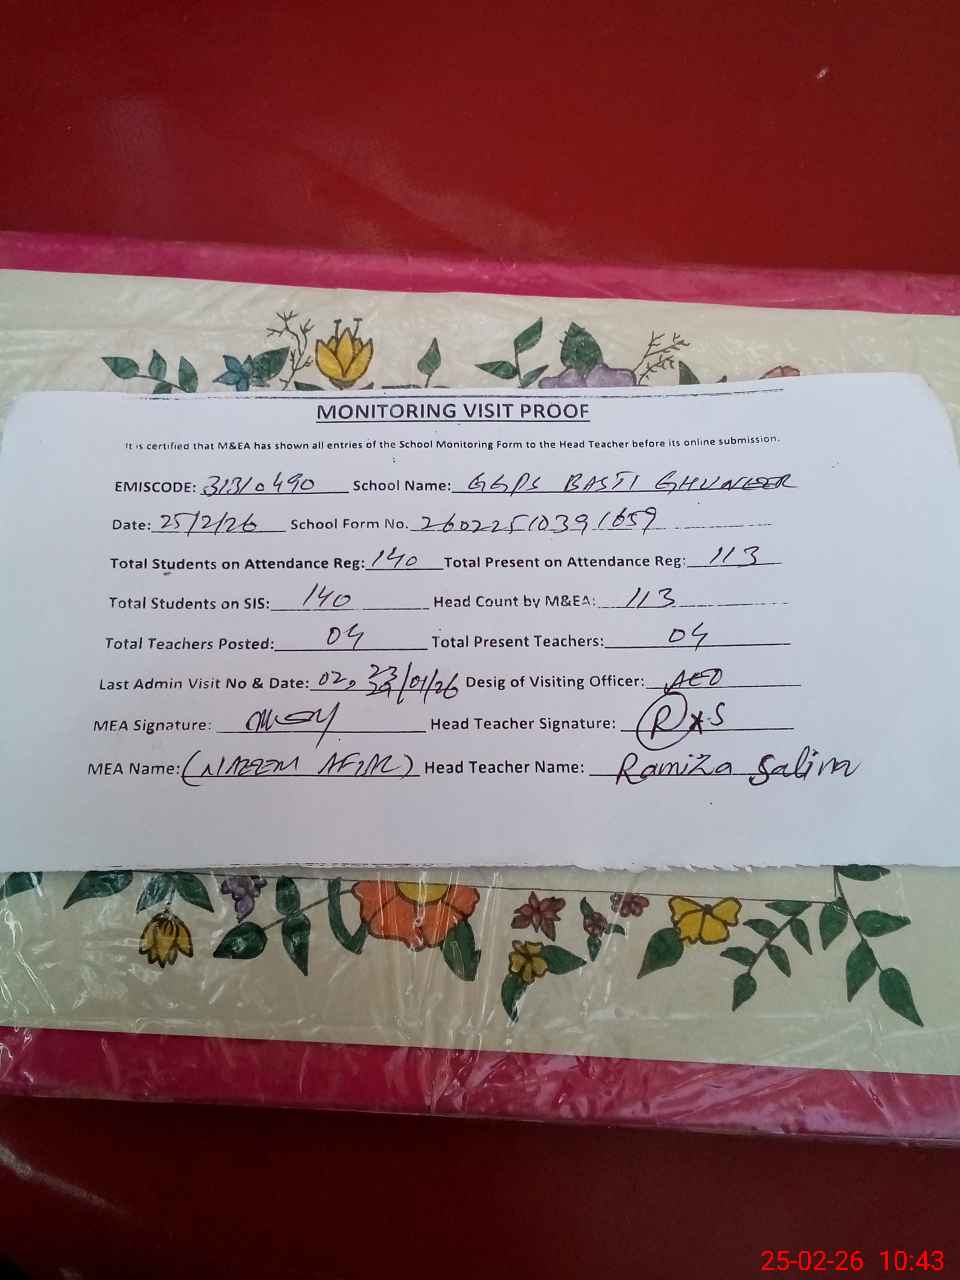 MONITORING VISIT PROOF
It is certified that M&EA has shown all entries of the School Monitoring Form to the Head Teacher before its online submission.
EMISCODE: 31310490 School Name: GGPS BASTI
Date: 25/2/26 School Form No. 26022510391659
Total Students on Attendance Reg: 140 Total Present on Attendance Reg: 113
Total Students on SIS: 140 Head Count by M&EA: 113
Total Teachers Posted: 04 Total Present Teachers: 04
Last Admin Visit No & Date: 02, /01/26 Desig of Visiting Officer: AEO
MEA Signature: Head Teacher Signature: R S
MEA Name: (NAEEM ) Head Teacher Name: Ramiza Salim
25-02-26 10:43